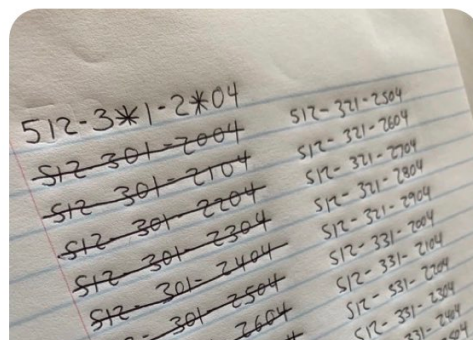 512-3*1-2*04
512-301-2004
512-301-2104
512-301-2204
512-301-2304
512-301-2404
301-2504
2604
512-321-2504
512-321-2604
512-321-2704
512-321-2804
512-321-2904
512-331-2004
512-331-2104
512-331-2204
512-331-2304
331-2404